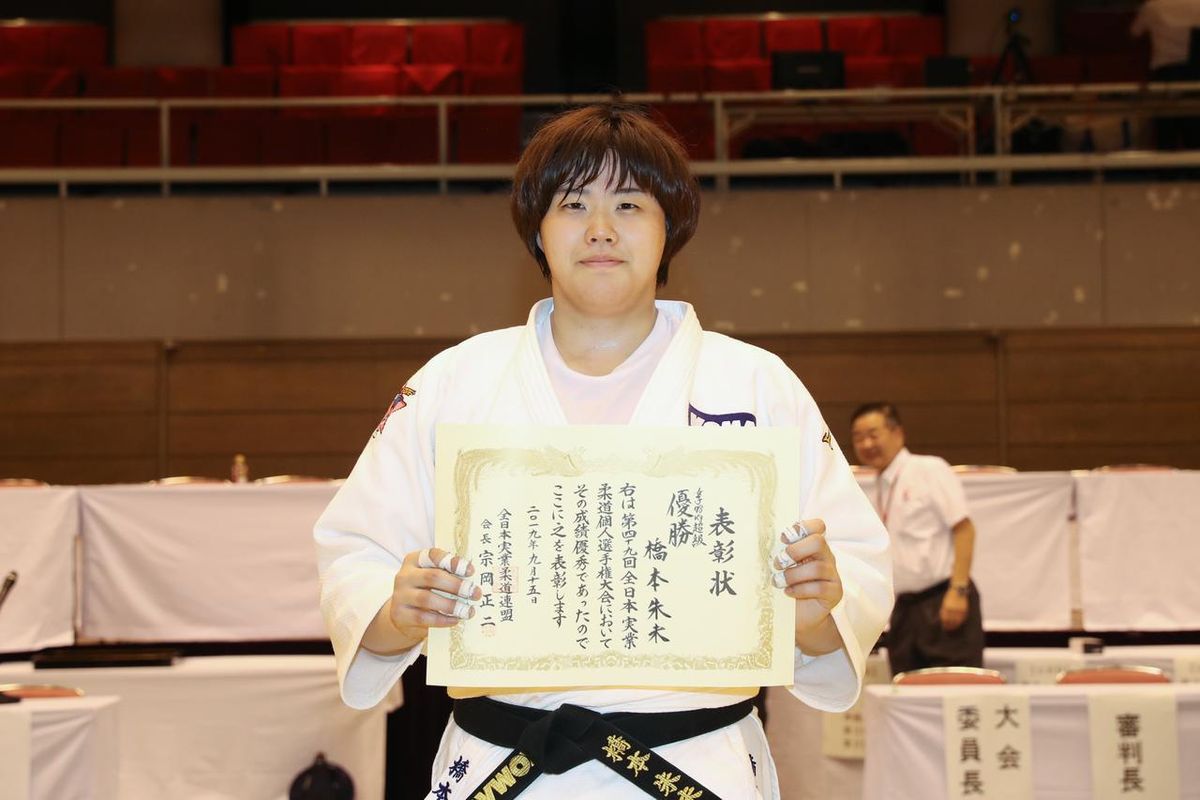 表彰状
女子78kg超級
優勝
橋本朱未
右は第四十九回全日本実業
柔道個人選手権大会において
その成績優秀であったので
ここに之を表彰します
二〇一九年九月十五日
全日本実業柔道連盟
会長 宗岡正二
橋本朱未
橋本
大会
委員長
審判長